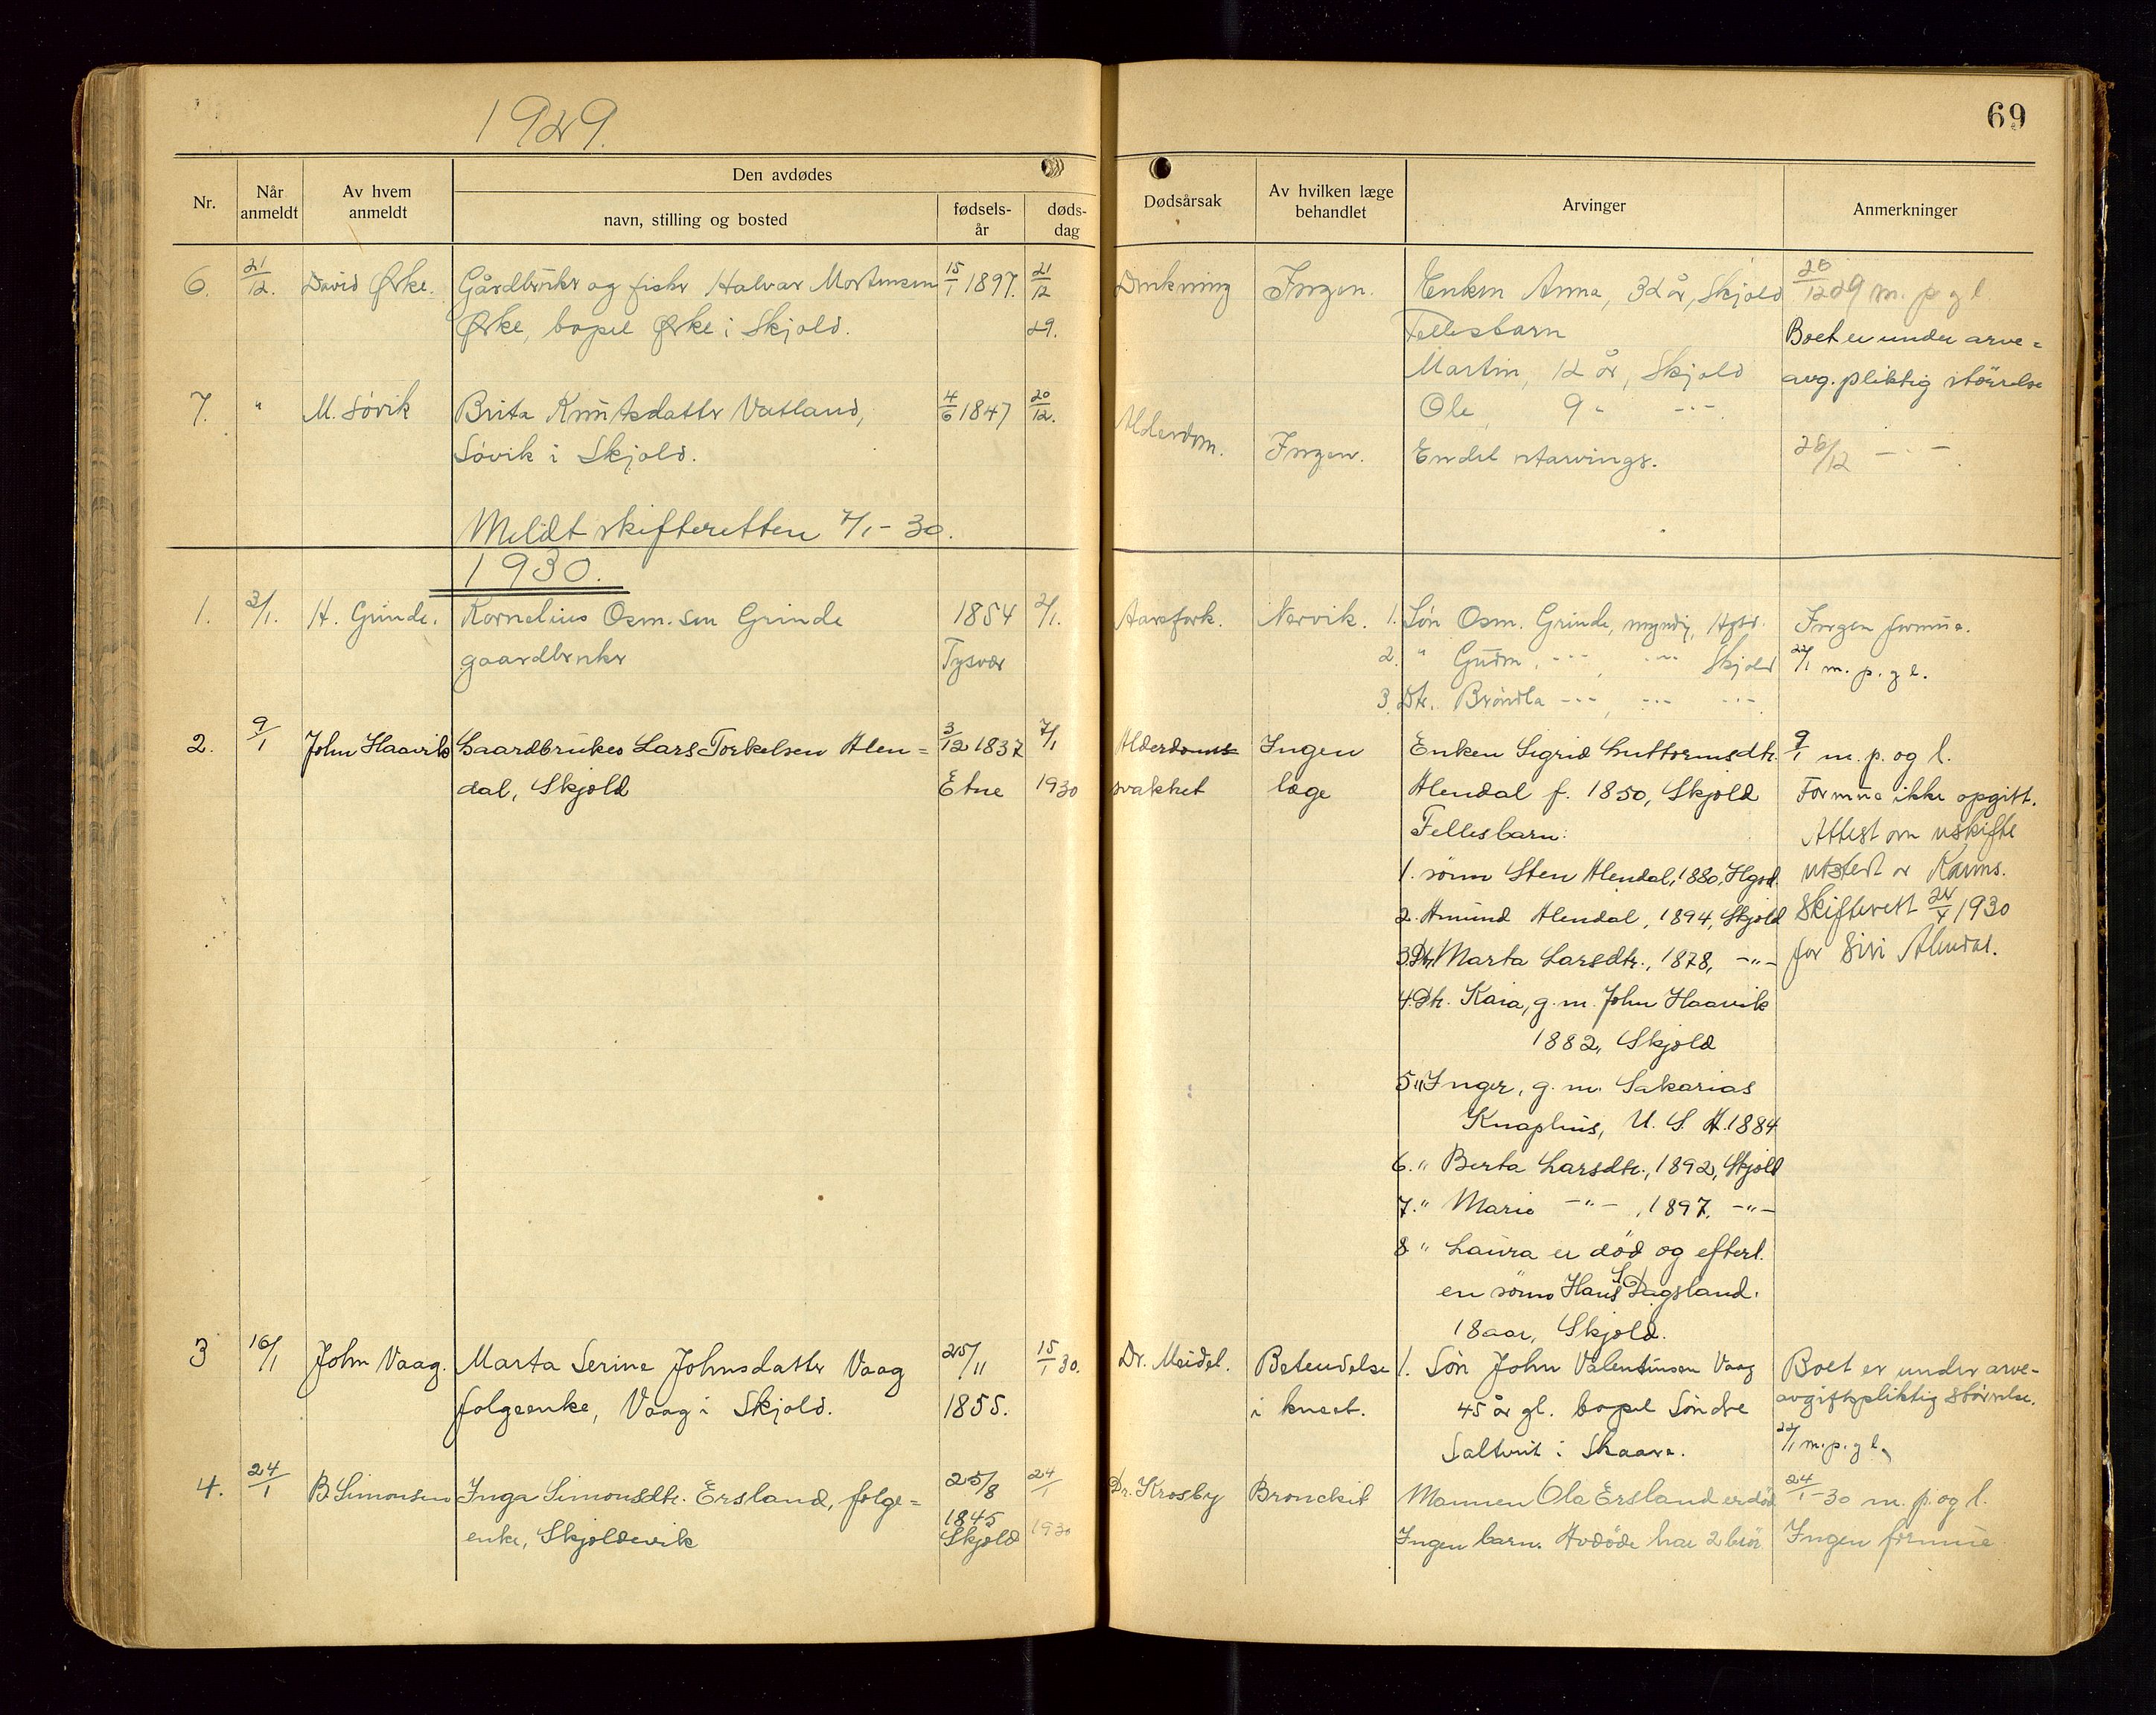 1929.
69
Nr.
Når anmeldt
Av hvem anmeldt
Den avdødes
navn, stilling og bosted
fødsels-år
døds-dag
Dødsårsak
Av hvilken læge behandlet
Arvinger
Anmerkninger
6. 21/12. David Ørke. Gårdbruker og fisker Halvar Mortensen 15/1 1897. 21/12
Ørke, bopel Ørke i Skjold. 29.
Drukning Ingen. Enken Anna, 32 år, Skjold 28/12 29 m. p og l
Fellesbarn Boet er under arve=
Martin, 12 år, Skjold avg. pliktig størrelse
Ole 9 " -"-
7. " M. Søvik Brita Knutsdatter Vatland, 4/6 1847 20/12.
Søvik i Skjold.
Alderdom. Ingen. Endel utarvings. 28/12 - " -
Meldt skifteretten 7/1 - 30.
1930.
1. 3/1. H. Grinde. Kornelius Osm.sen Grinde 1854 2/1.
gaardbruker Tysvær
Aarefork. Nervik. 1. Søn Osm. Grinde, myndig, Hgsd. Ingen formue.
2. " Gudm. -"-, -"- Skjold 22/1 m. p. og l.
3. Dtr. Brøndla -"-, -"- -"-
2. 9/1 John Haavik Gaardbruker Lars Torkelsen Alen= 3/12 1837 7/1
dal, Skjold Etne 1930
Alderdoms= Ingen Enken Sigrid Guttormsdtr. 9/1 m. p. og l.
svakket læge Alendal f. 1850, Skjold Formue ikke opgitt.
Fellesbarn: Attest om uskifte
1. sønn Sten Alendal, 1880, Hgsd. utstedt av Karms.
2. Amund Alendal, 1894, Skjold Skifterett 24/4 1930
3. Dtr. Marta Larsdtr., 1878, -"- for Siri Alendal.
4. Dtr. Kaia, g. m. John Haavik
1882, Skjold
5 " Inger, g. m. Sakarias
Knaphus, U. S. A. 1884
6. " Berta Larsdtr., 1892, Skjold
7. " Marie -"-, 1897, -"-
8 " Laura er død og efterl.
en sønn Hans S Dagsland.
18 aar, Skjold.
3 16/1 John Vaag. Marta Serine Johnsdatter Vaag 25/11 15/1 30.
folgeenke, Vaag i Skjold. 1855.
Dr. Meidel. Betendelse 1. Søn John Valentinsen Vaag Boet er under arve-
i kneet. 45 år gl. bopel Søndre avgiftspliktig størrelse.
Saltveit i Skaare. 22/1 m. p. og l.
4. 24/1 B. Simonsen Inga Simonsdtr. Ersland, folge= 25/8 24/1
enke, Skjoldevik 1845 Skjold 1930
Dr. Krosby Bronckit Mannen Ola Ersland er død 24/1 - 30 m. p. og l.
Ingen barn. Avdøde har 2 brør Ingen formue